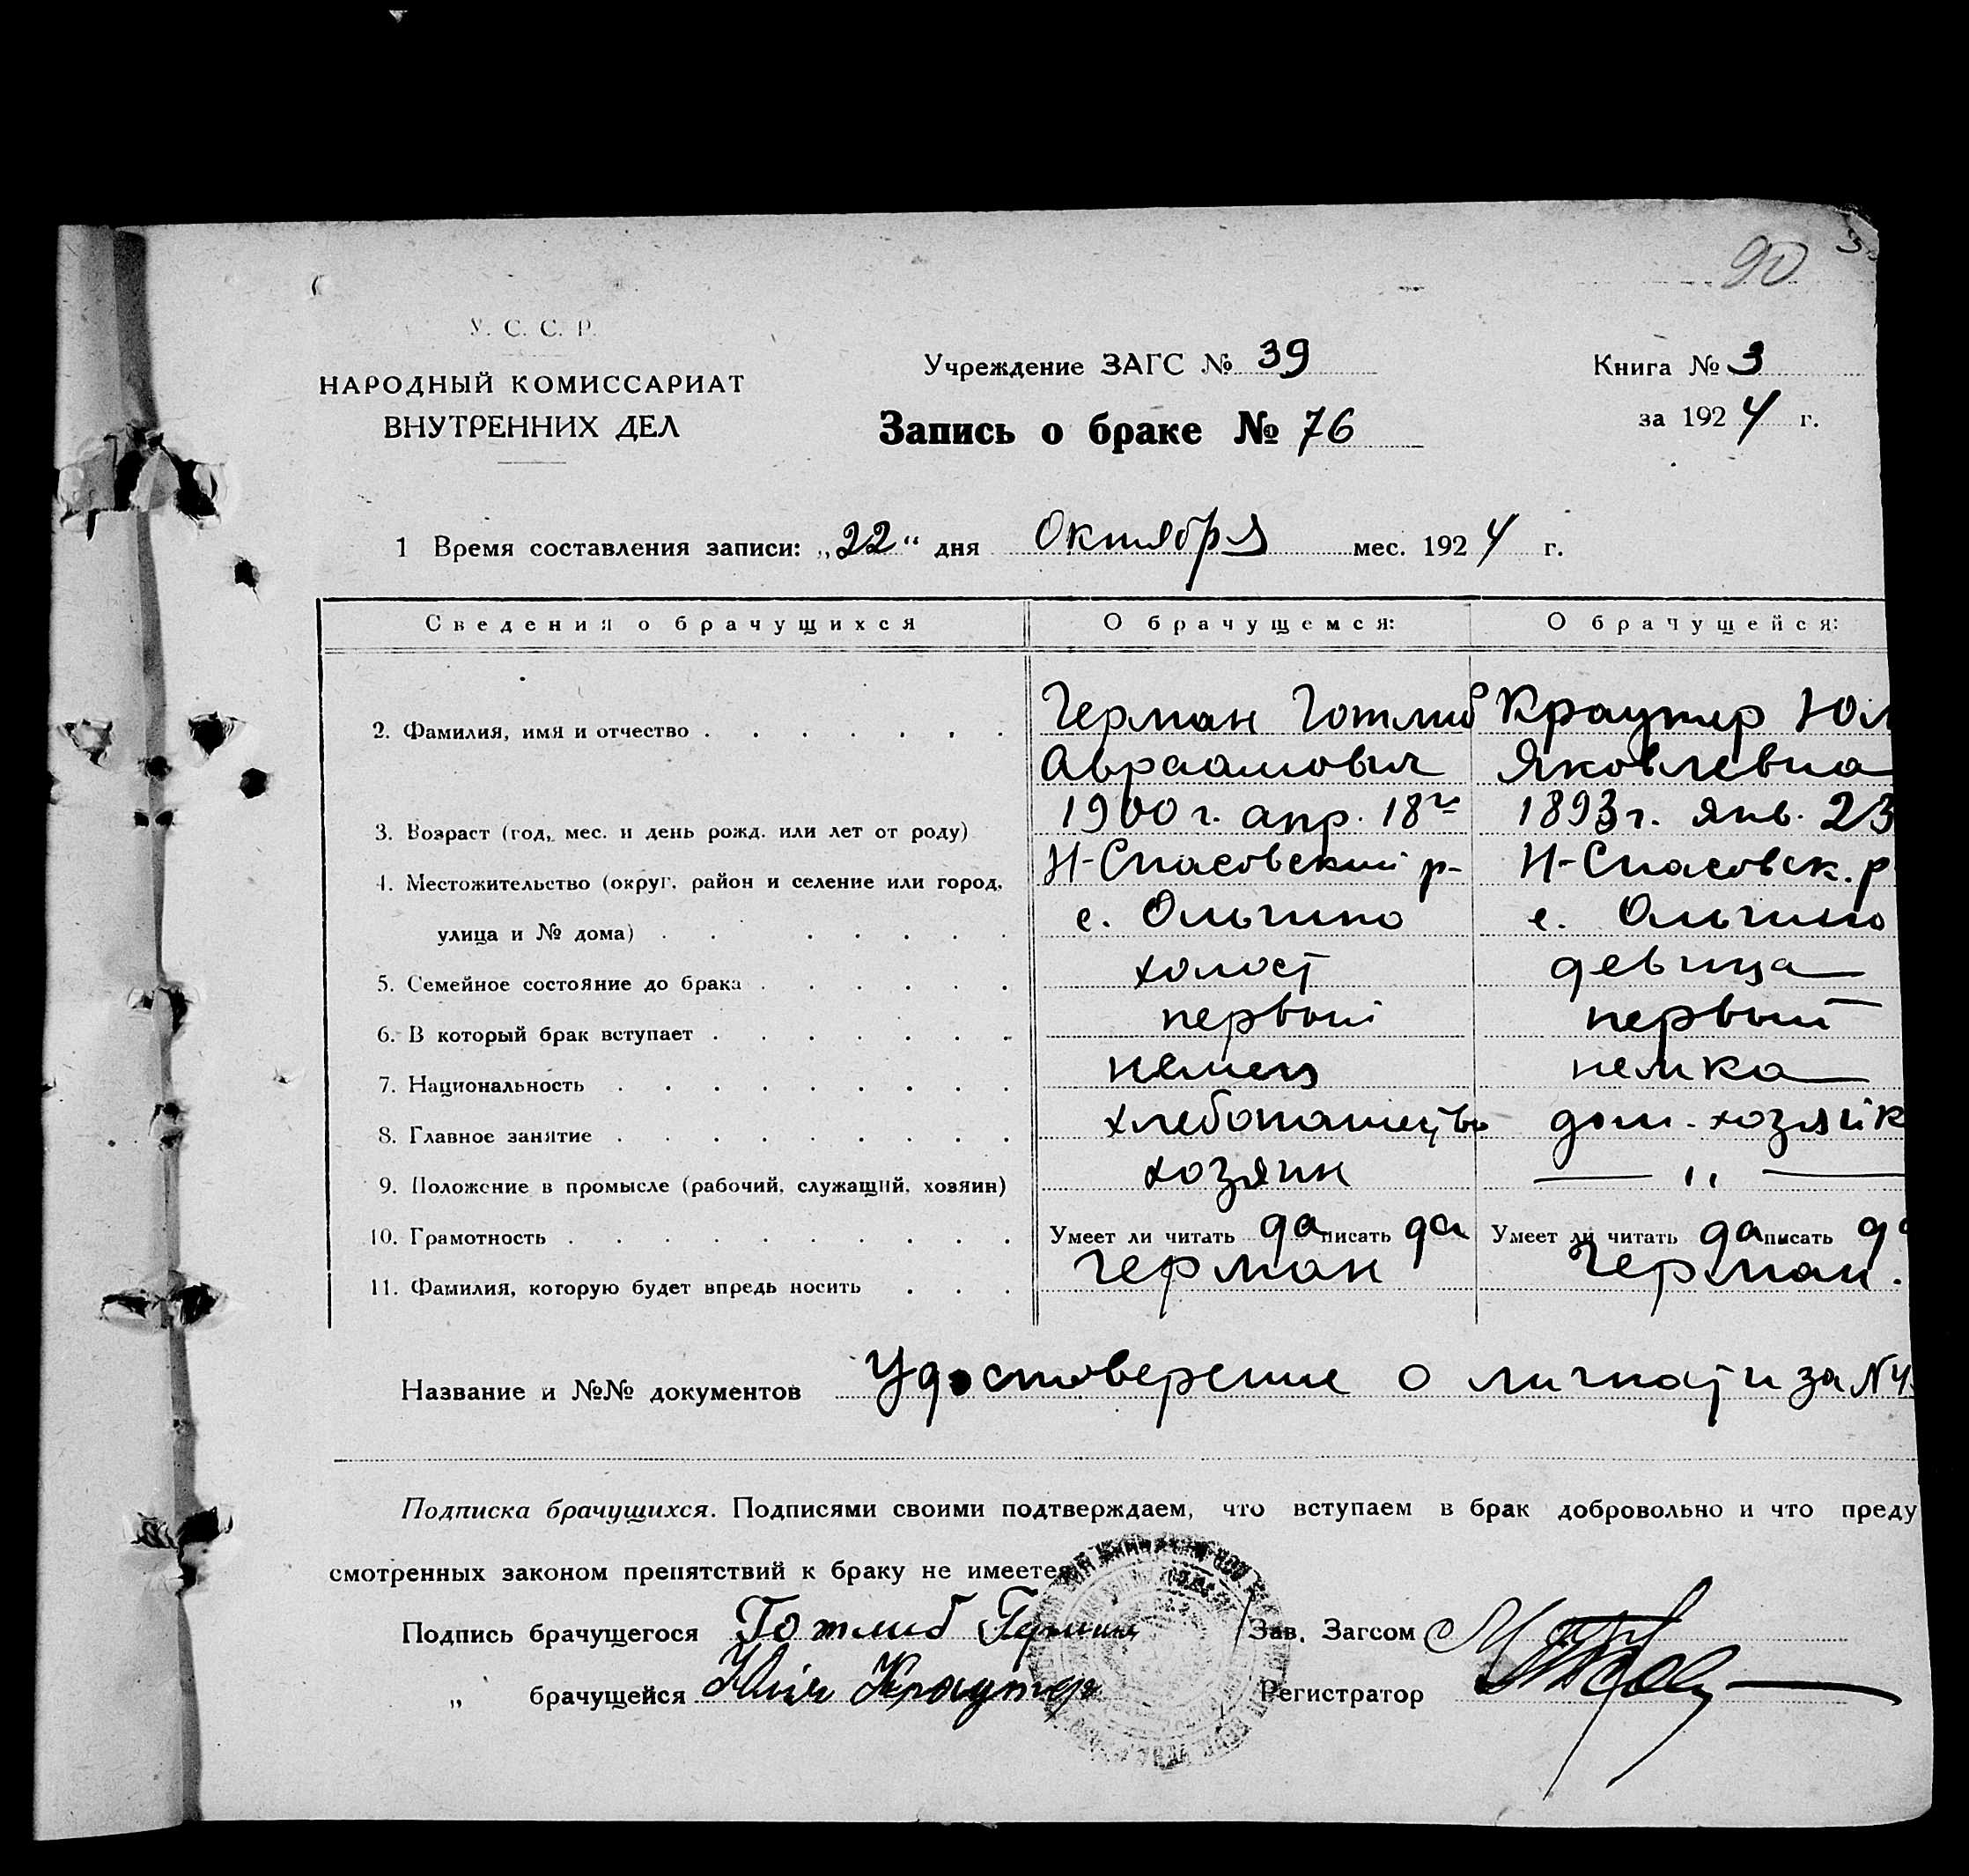 90
У. С. С. Р.
НАРОДНЫЙ КОМИССАРИАТ
ВНУТРЕННИХ ДЕЛ
Учреждение ЗАГС № 39
Запись о браке № 76
Книга № 3
за 1924 г.
1 Время составления записи: „22“ дня Октября мес. 1924 г.
Сведения о брачущихся О брачущемся: О брачущейся:
2. Фамилия, имя и отчество Герман Готлиб Краутер Юл
Авраамович Яковлевна
3. Возраст (год, мес. и день рожд. или лет от роду) 1900 г. апр. 18го 1893 г. янв. 23
4. Местожительство (округ, район и селение или город, Н-Спасовский р- Н-Спасовск. р
улица и № дома) с. Ольгино с. Ольгино
5. Семейное состояние до брака холост девица
6. В который брак вступает первый первый
7. Национальность немец немка
8. Главное занятие хлебопашество дом. хозяйк
9. Положение в промысле (рабочий, служащий, хозяин) хозяин — „ —
10. Грамотность Умеет ли читать да писать да Умеет ли читать да писать да
11. Фамилия, которую будет впредь носить Герман Герман.
Название и №№ документов Удостоверение о личности за №
Подписка брачущихся. Подписями своими подтверждаем, что вступаем в брак добровольно и что преду
смотренных законом препятствий к браку не имеется
Подпись брачущегося Готлиб Герман Зав. Загсом
„ брачущейся Юлія Краутер Регистратор